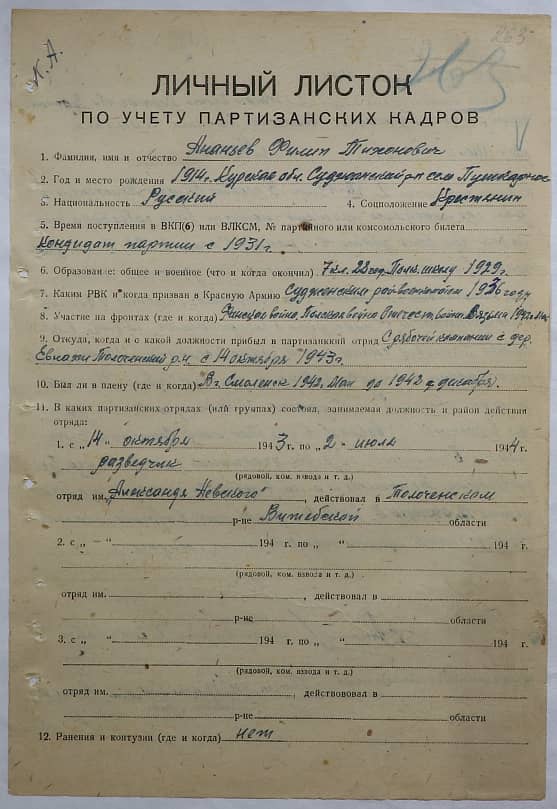 К. А.
263
263
ЛИЧНЫЙ ЛИСТОК
ПО УЧЕТУ ПАРТИЗАНСКИХ КАДРОВ
1. Фамилия, имя и отчество Ананьев Филип Тихонович
2. Год и место рождения 1914 г. Курская обл. Суджанский р-н село
3. Национальность Русский 4. Соцположение Крестянин
5. Время поступления в ВКП(б) или ВЛКСМ, № партийного или комсомольского билета
Кондидат партии с 1931 г.
6. Образование: общее и военное (что и когда окончил) 7 кл. школу 1929 г.
7. Каким РВК и когда призван в Красную Армию Суджанским райвоенкоматом 1936 году
8. Участие на фронтах (где и когда) Финская война, Польская война Отечест. война Вязма
9. Откуда, когда и с какой должности прибыл в партизанккий отряд С рабочей компании с дер.
Евлахи Толоченский р-н с 14 октября 1943 г.
10. Был ли в плену (где и когда) В г. Смоленск 1942, Мая до 1942 г. декабря).
11. В каких партизанских отрядах (или группах) состоял, занимаемая должность и район действия
отряда:
1. с „14“ октября 1943 г. по „2“ июля 1944 г.
разведчик
(рядовой, ком. взвода и т. д.)
отряд им. „Александра Невского“, действовал в Толоченском
р-не Витебской области
2. с „ “ 194 г. по „ “ 194 г.
(рядовой, ком. взвода и т. д.)
отряд им. , действовал в
р-не области
3. с „ “ 194 г. по „ “ 194 г.
(рядовой, ком. взвода и т. д.)
отряд им. , действововал в
р-не области
12. Ранения и контузии (где и когда) нет